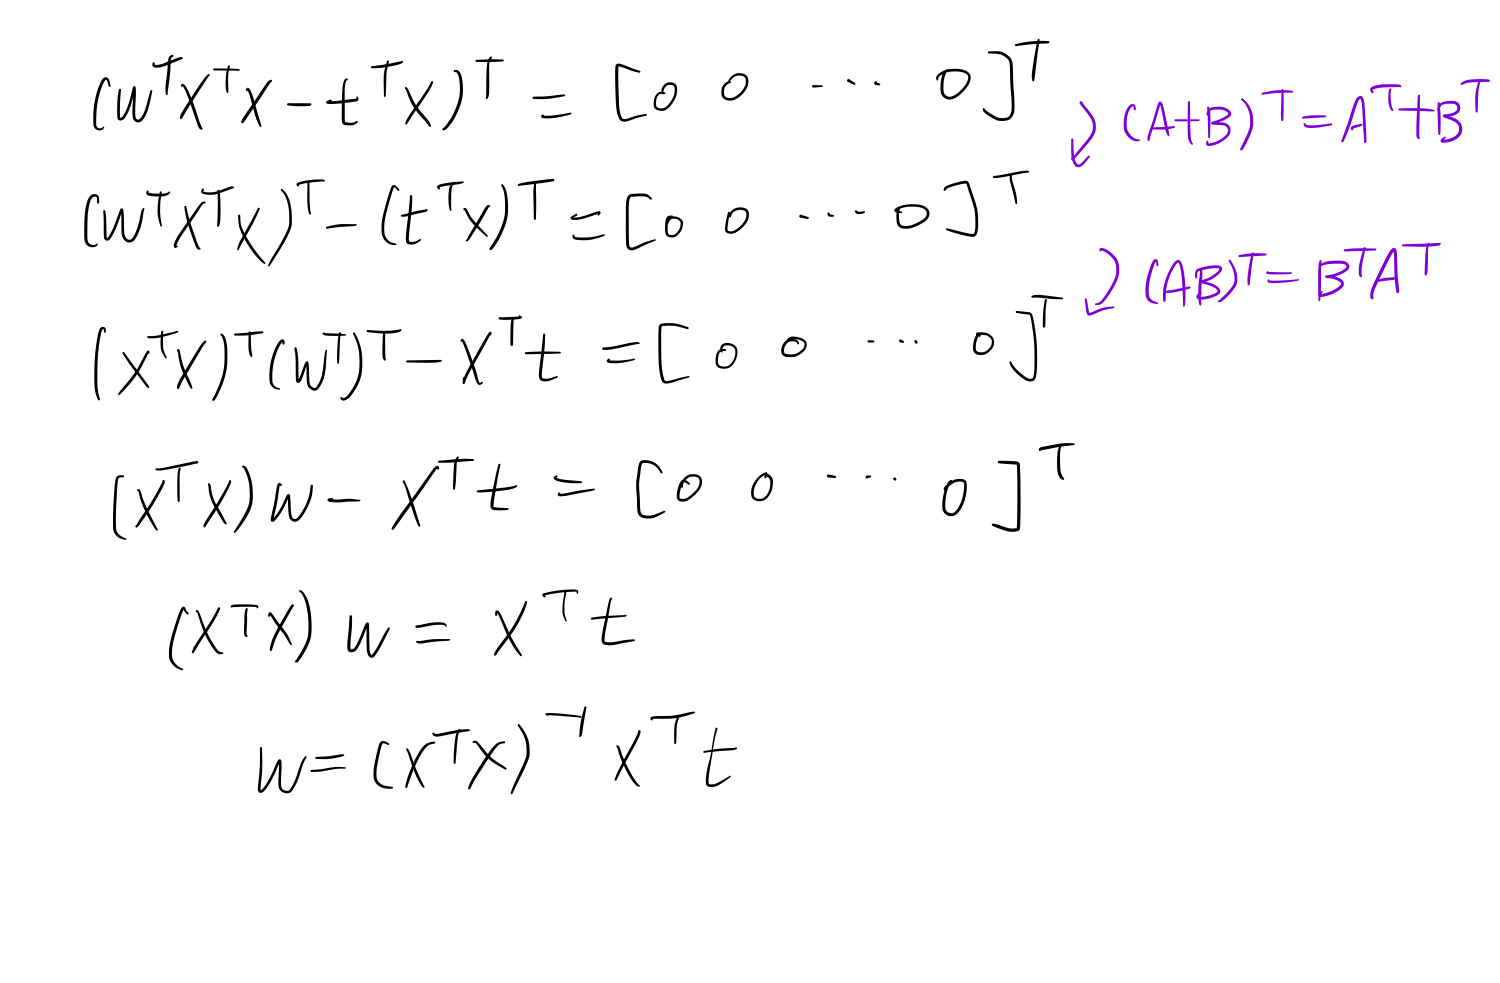 (wᵀXᵀX − tᵀX)ᵀ = [0 0 ⋯ 0]ᵀ
(A+B)ᵀ = Aᵀ+Bᵀ
(wᵀXᵀX)ᵀ − (tᵀX)ᵀ = [0 0 ⋯ 0]ᵀ
(AB)ᵀ = BᵀAᵀ
(XᵀX)ᵀ(wᵀ)ᵀ − Xᵀt = [0 0 ⋯ 0]ᵀ
(XᵀX)w − Xᵀt = [0 0 ⋯ 0]ᵀ
(XᵀX) w = Xᵀt
w = (XᵀX)⁻¹ Xᵀt